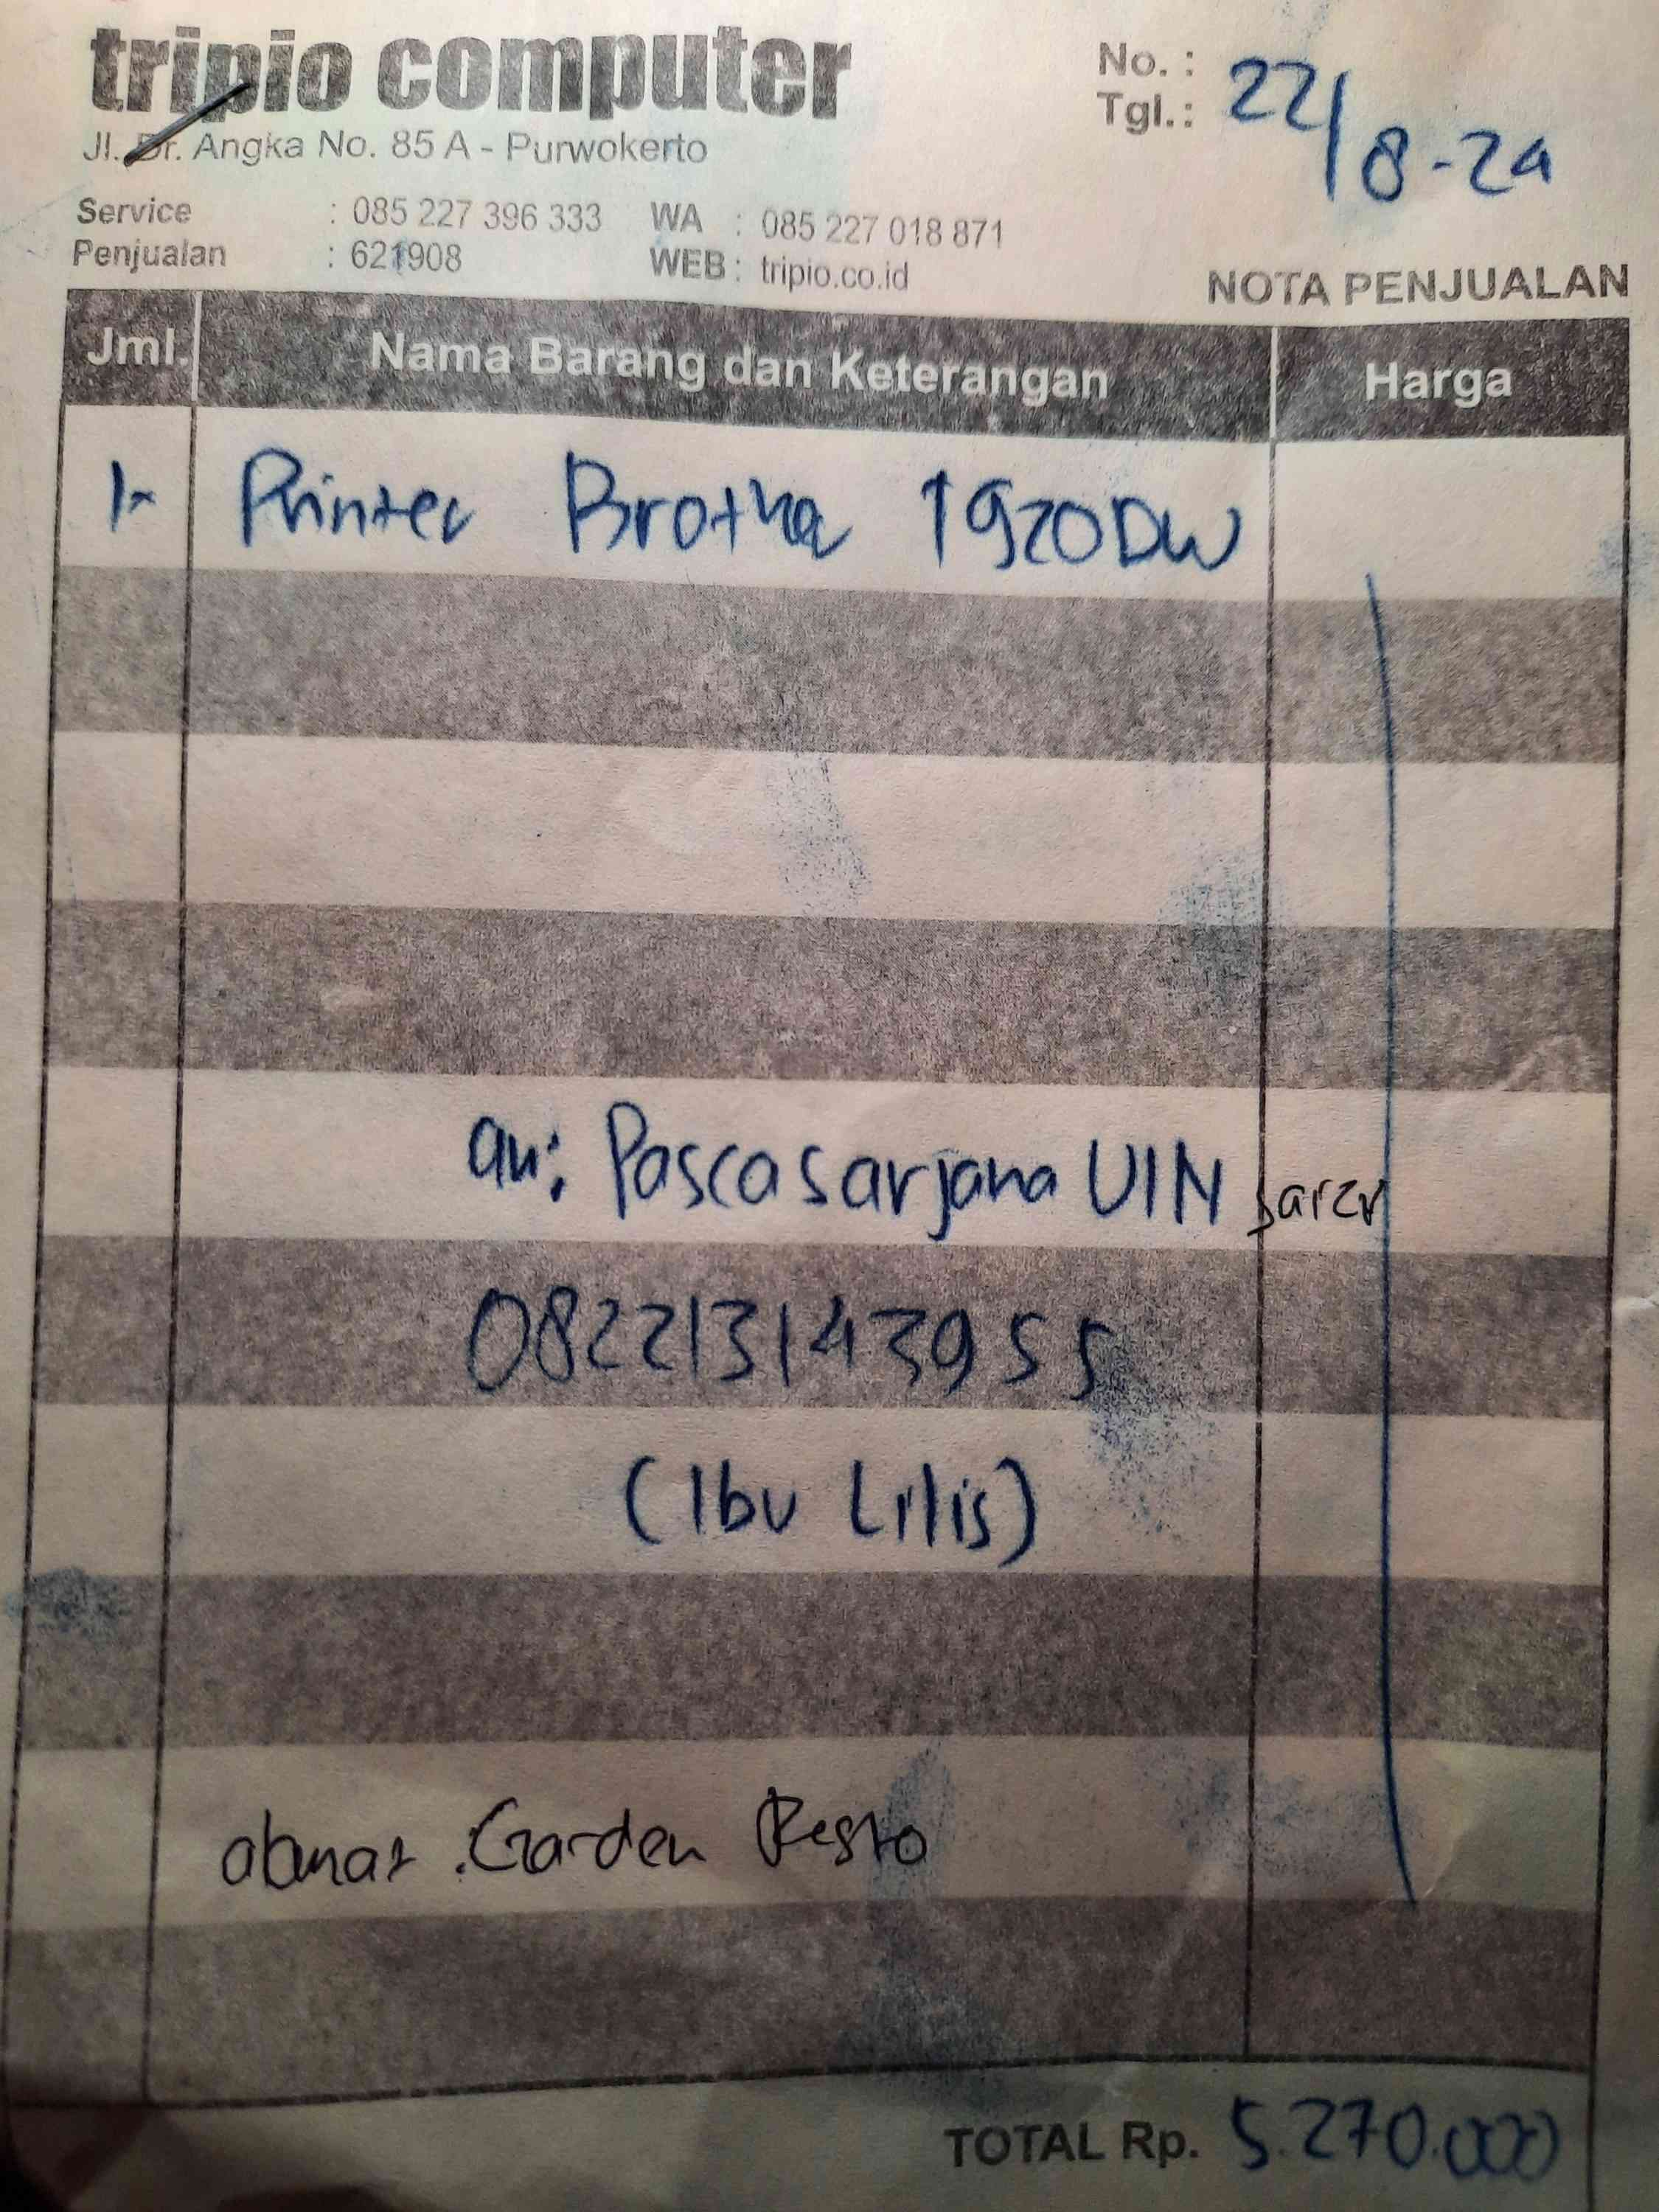 tripio computer
Jl. Dr. Angka No. 85 A - Purwokerto
Service : 085 227 396 333 WA : 085 227 018 871
Penjualan : 621908 WEB : tripio.co.id
No. :
Tgl. : 22/8-24
NOTA PENJUALAN
Jml. Nama Barang dan Keterangan Harga
1- Printer Brother 1920DW
an: Pascasarjana UIN
082213143955
(Ibu Lilis)
Garden Resto
TOTAL Rp. 5.270.000